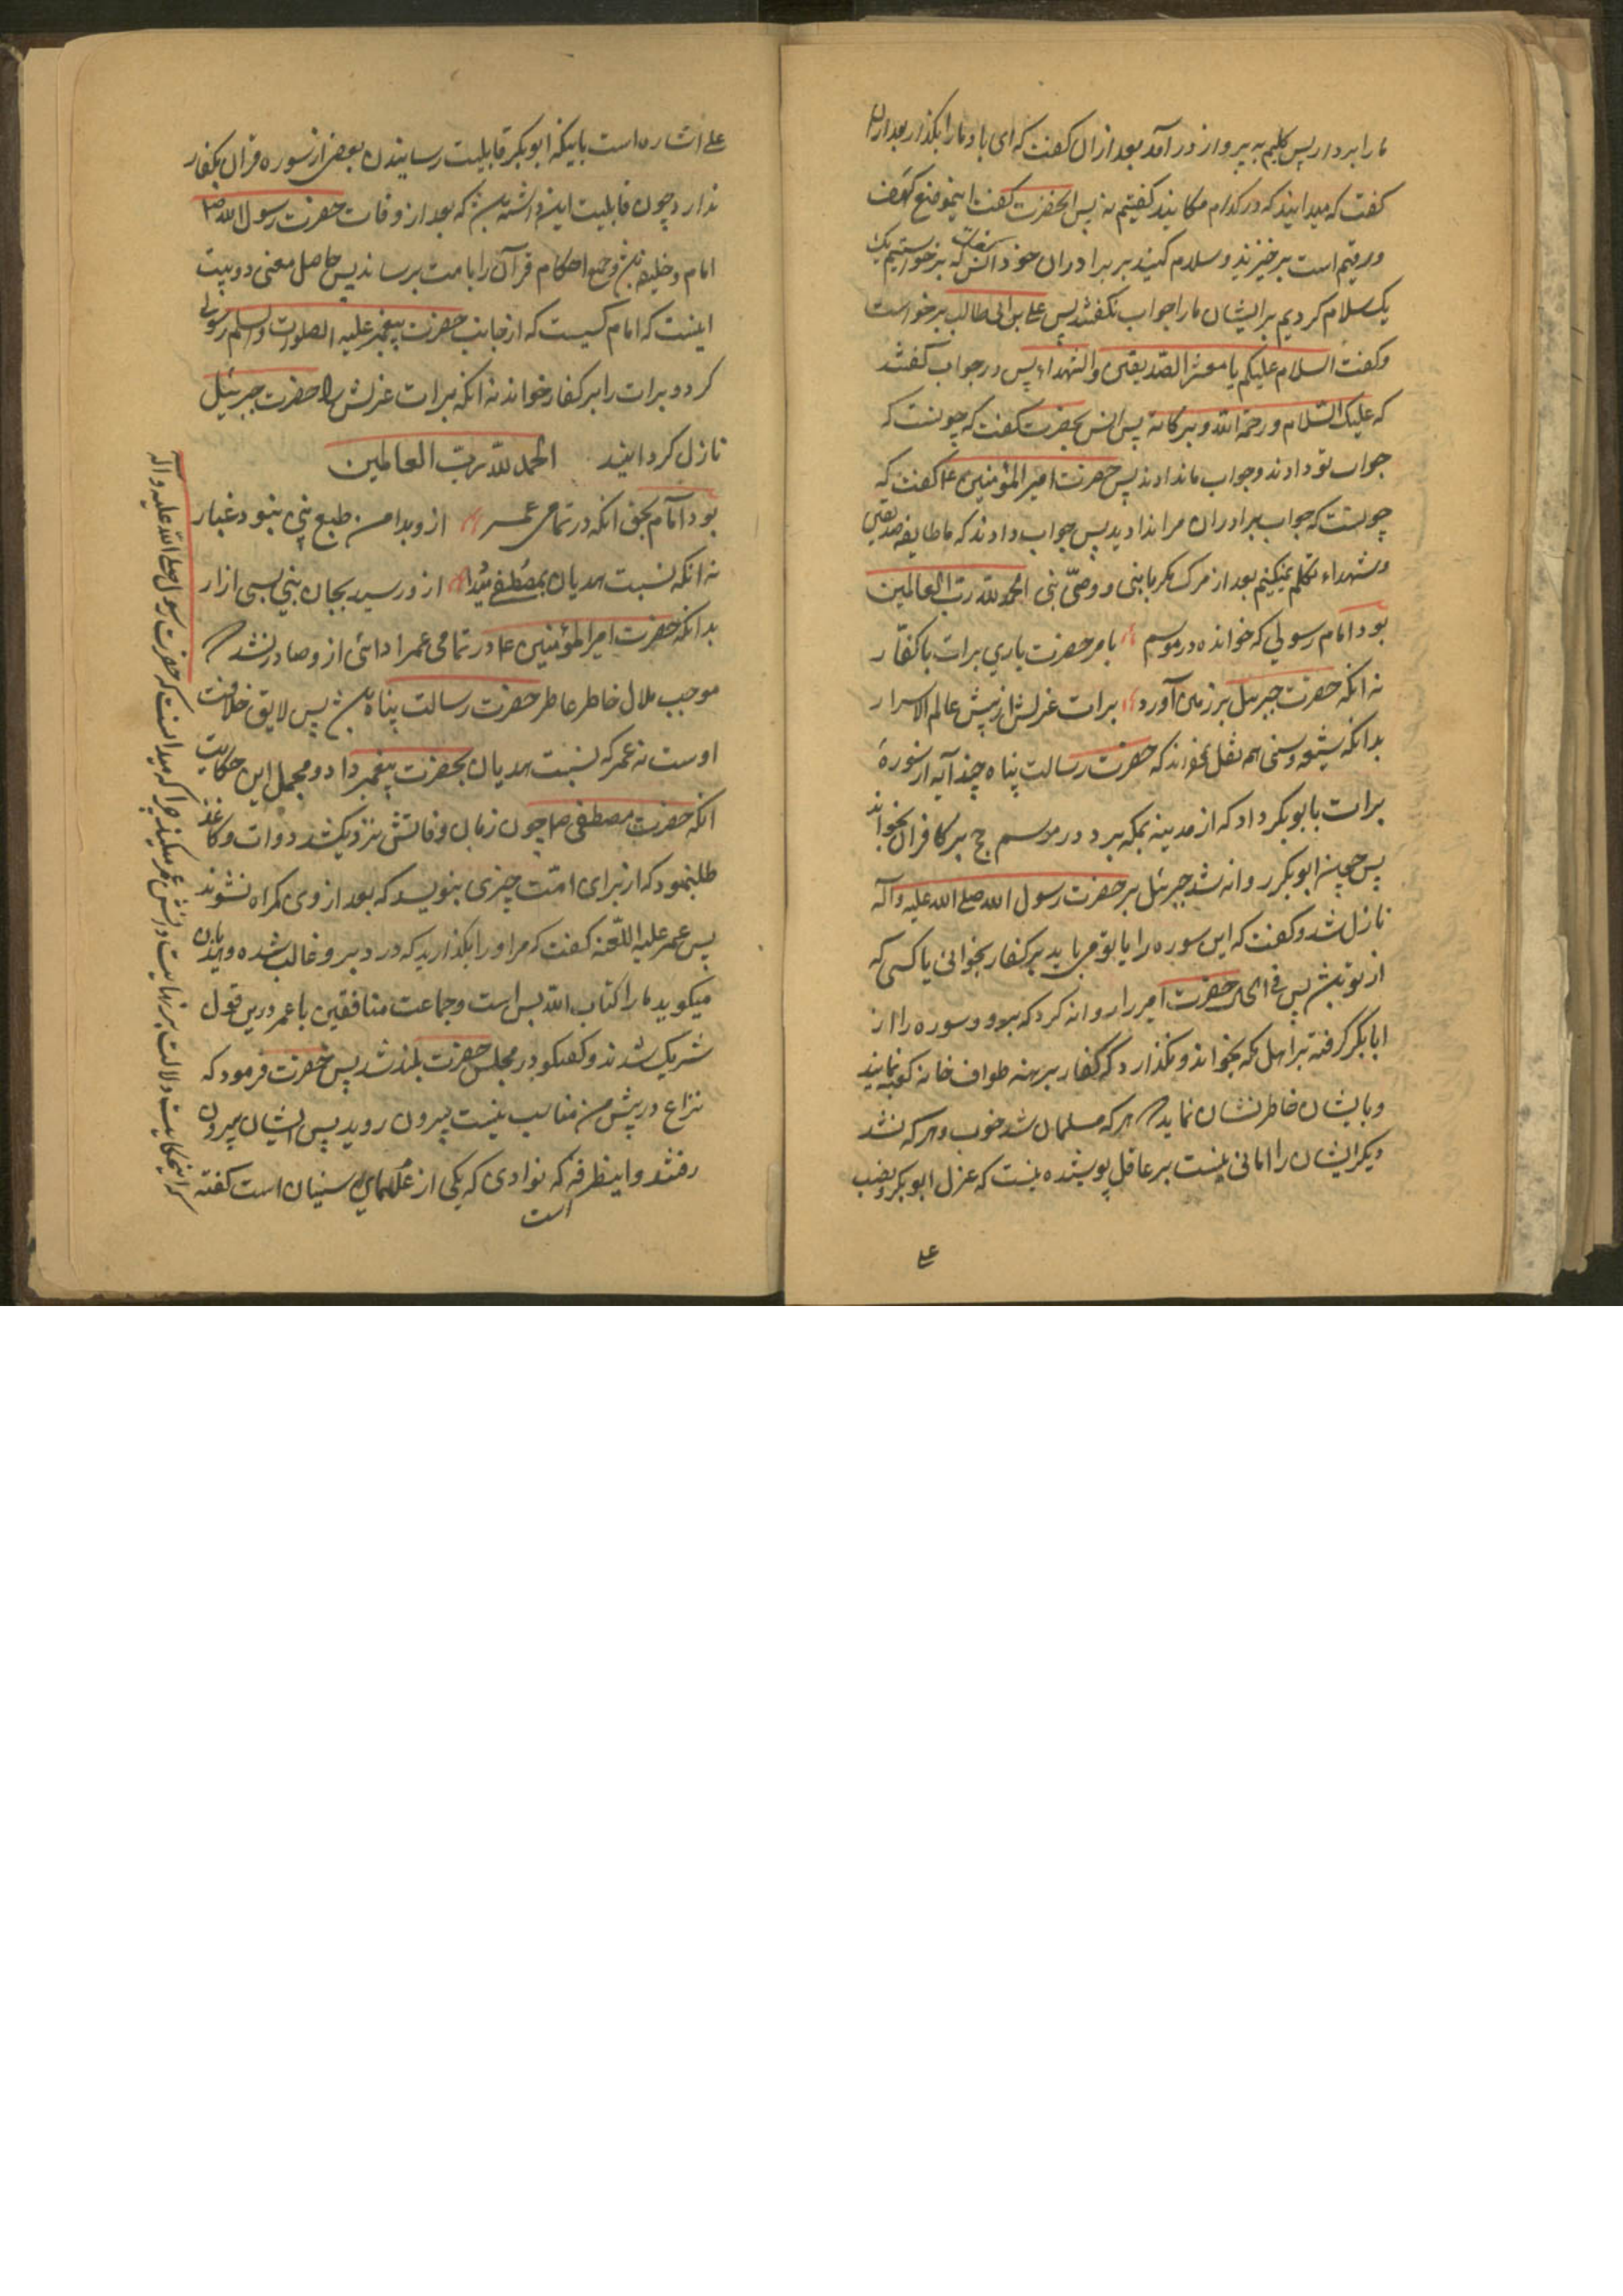 ما را بردار پس کلیم به پرواز در آمد بعد از ان کفت که ای باد ما را بکذار بعد ازان
کفت که میدانید که در کدام مکانید کفتیم نه پس انحضرت کفت اینموضع کهف
ورقیم است برخیزید و سلام کنید بر برادران خود انس که برخواستیم یک
یک سلام کردیم بر ایشان ما را جواب نکفتند پس علی بن ابی طالب برخواست
و کفت السلام علیکم یا معشر الصدیقین والشهداء پس در جواب کفتند
که علیک السلام ورحمة الله و برکاته پس انس بحضرت کفت که چونست که
جواب تو دادند و جواب ما ندادند پس حضرت امیر المؤمنین ع کفت که
چونست که جواب برادران مرا ندادید پس جواب دادند که ما طایفه صدیقین
و شهداء تکلم نمیکنیم بعد از مرک مکر با نبی و وصی نبی الحمد لله رب العالمین
بود امام رسولی که خوانده در موسم بامر حضرت باری برات با کفار
نه انکه حضرت جبرئیل بر زمین آورد برات عزلش از پیش عالم الاسرار
بدانکه شیعه و سنی هم نقل نموده‌اند که حضرت رسالت پناه چند آیه از سوره
برات بابوبکر داد که از مدینه بمکه برد و در موسم حج بر کافران بخواند
پس چون ابوبکر روانه شد جبرئیل بر حضرت رسول الله صلی الله علیه وآله
نازل شد و کفت که این سوره را یا تو می باید بر کفار بخوانی یا کسی که
از تو باشد پس فی الحال حضرت امیر را روانه کرد که برو و سوره را از
ابابکر کرفته بر اهل مکه بخواند و نکذارد که کفار برهنه طواف خانه کعبه نمایند
و بایشان خاطر نشان نماید هر که مسلمان شد خوب و هر که نشد
دیکر ایشان را امانی نیست بر عاقل پوشیده نیست که عزل ابوبکر و نصب
علی
علی اشاره است باینکه ابوبکر قابلیت رسانیدن بعضی از سوره قران بکفار
ندارد چون قابلیت این داشته باشد که بعد از وفات حضرت رسول الله ص
امام و خلیفه باشد و جمیع احکام قرآن را بامت برساند پس حاصل معنی دو بیت
اینست که امام کسیست که از جانب حضرت پیغمبر علیه الصلوات والسلم رسولی
کرد و برات را بر کفار خواند نه انکه برات عزلش را حضرت جبرئیل
نازل کردانید الحمد لله رب العالمین
بود امام بحق انکه در تمامی عمر ازو بدامن طبع نبی نبود غبار
نه انکه نسبت هدیان بمصطفی از و رسید بجان نبی بسی ازار
بدانکه حضرت امیر المؤمنین ع در تمامی عمر ادائی از و صادر نشد
موجب ملال خاطر عاطر حضرت رسالت پناه باشد پس لایق خلافت
اوست نه عمر که نسبت هدیان بحضرت پیغمبر داد و مجمل این حکایت
انکه حضرت مصطفی ص چون زمان وفاتش نزدیکشد دوات و کاغذ
طلبنمود که از برای امت چیزی بنویسد که بعد از وی کمراه نشوند
پس عمر علیه اللعنه کفت که مر او را بکذارید که درد برو غالب شده و هذیان
میکوید ما را کتاب الله بس است و جماعت منافقین با عمر درین قول
شریک شدند و کفتکو در مجلس حضرت بلند شد پس حضرت فرمود که
نزاع در پیش من مناسب نیست بیرون روید پس ایشان بیرون
رفتند و اینطرفه که نوادی که یکی از علمای سنیان است کفته
است
که اینحکایت دلالت بر نهایت دانش عمر میکند چرا که میدانست که حضرت رسول صلی الله علیه وآله